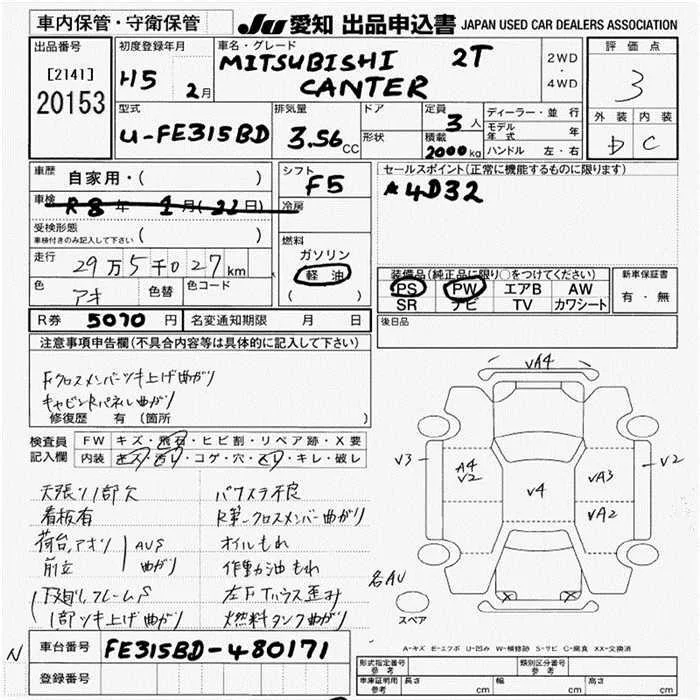 車内保管・守衛保管
JU 愛知 出品申込書 JAPAN USED CAR DEALERS ASSOCIATION
出品番号
[2141]
20153
初度登録年月
H5 2月
車名・グレード
MITSUBISHI 2T
CANTER
2WD
・
4WD
評価点
3
外装 内装
D C
型式
U-FE315BD
排気量
3.56 CC
ドア
形状
定員 3人
積載 2000kg
ディーラー・並行
モデル年式 年
ハンドル 左・右
車歴 自家用・( )
車検 R8年1月(22日)
受検形態
車検付きのみ記入して下さい ( )
走行 29万5千027km
色 アオ 色替 色コード
シフト
F5
冷房
燃料
ガソリン
軽油
( )
セールスポイント(正常に機能するものに限ります)
*4D32
装備品(純正品に限り○をつけてください)
PS PW エアB AW
SR ナビ TV カワシート
新車保証書
有・無
R券 5070円 名変通知期限 月 日
後日品
注意事項申告欄(不具合内容等は具体的に記入して下さい)
Fクロスメンバーツキ上げ曲がり
キャビンRパネル曲がり
修復歴 有 (箇所 )
検査員 FW キズ・飛石・ヒビ割・リペア跡・X要
記入欄 内装 キズ・汚レ・コゲ・穴・スレ・キレ・破レ
天張り1部欠 バウスラ不良
看板有 R第一クロスメンバー曲がり
荷台,アオリ AUS オイルもれ
前立 曲がり 作動油もれ
下廻りフレームS 左Fハウス歪み
1部ツキ上げ曲がり 燃料タンク曲がり
VA4
V3
A4
V2
V4
VA3
VA2
V2
X X
名AU
スペア
A-キズ E-エクボ U-凹み W-補修跡 S-サビ C-腐食 XX-交換済
N
車台番号 FE315BD-480171
登録番号
形式指定番号 参考
類別区分番号 参考
車庫証明用 参考 長さ cm 幅 cm 高さ cm